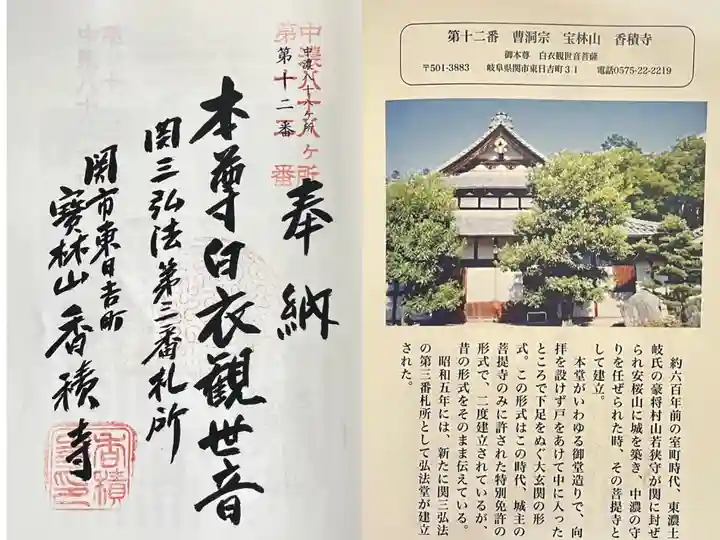 奉納
中濃八十八ヶ所
第十二番
本尊白衣觀世音
関三弘法第三番札所
関市東日吉町
寶林山香積寺
第十二番 曹洞宗 宝林山 香積寺
御本尊 白衣観世音菩薩
〒501-3883 岐阜県関市東日吉町31 電話0575-22-2219
約六百年前の室町時代、東濃土
岐氏の豪将村山若狭守が関に封ぜ
られ安桜山に城を築き、中濃の守
りを任ぜられた時、その菩提寺と
して建立。
本堂がいわゆる御堂造りで、向
拝を設けず戸をあけて中に入った
ところで下足をぬぐ大玄関の形
式。この形式はこの時代、城主の
菩提寺のみに許された特別免許の
形式で、二度建立されているが、
昔の形式をそのまま伝えている。
昭和五年には、新たに関三弘法
の第三番札所として弘法堂が建立
された。